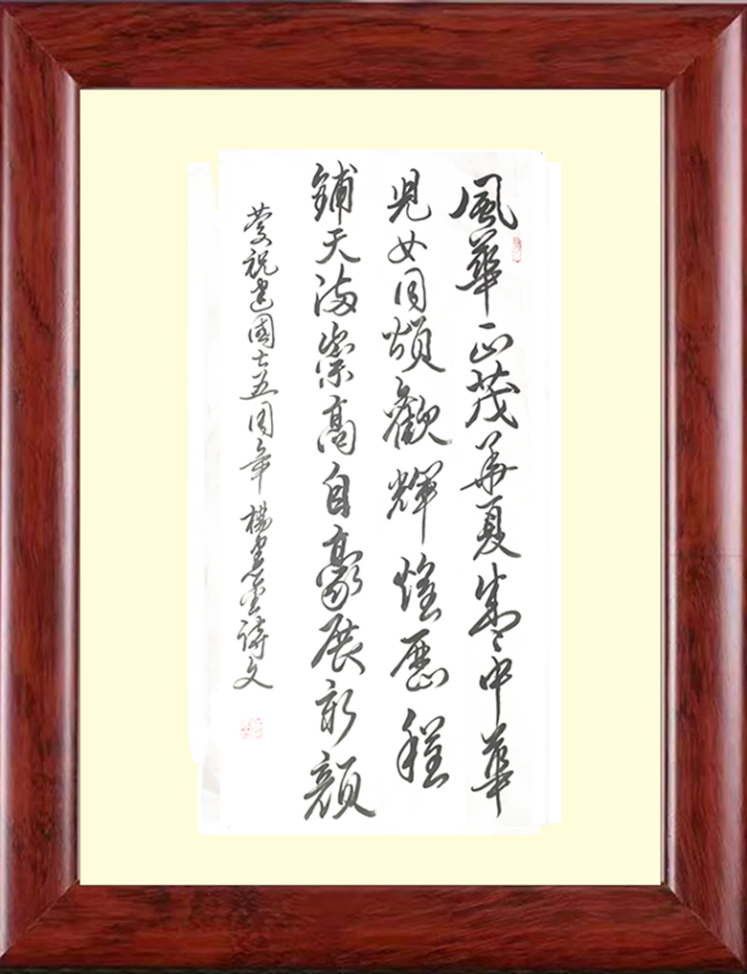 風華正茂华夏中華
兒女同頌歡輝煌歷程
鋪天崇高自豪展新顏
慶祝建國七五周年 楊詩文